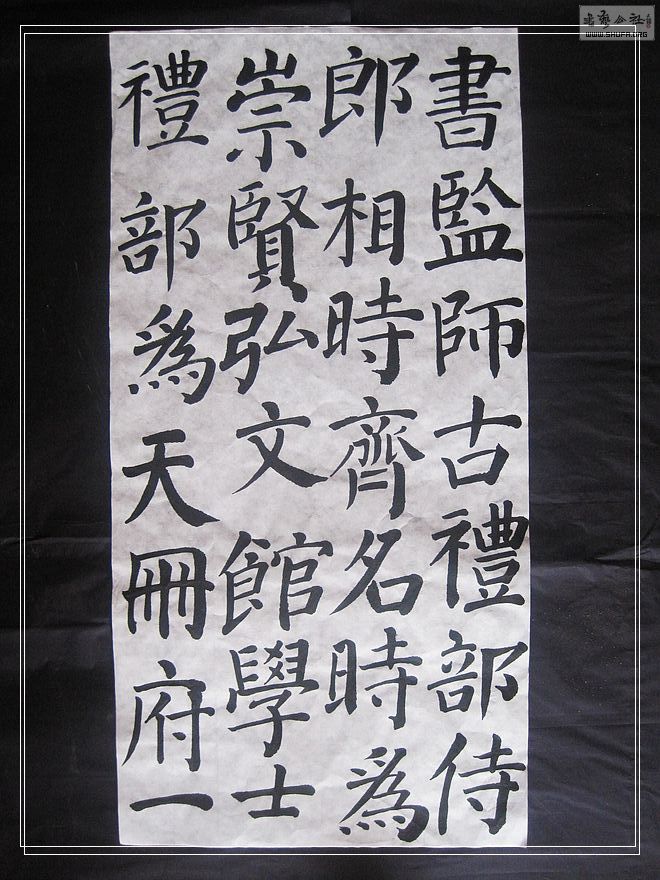 書監師古禮部侍
郎相時齊名時為
崇賢弘文館學士
禮部為天冊府一
WWW.SHUFA.ORG